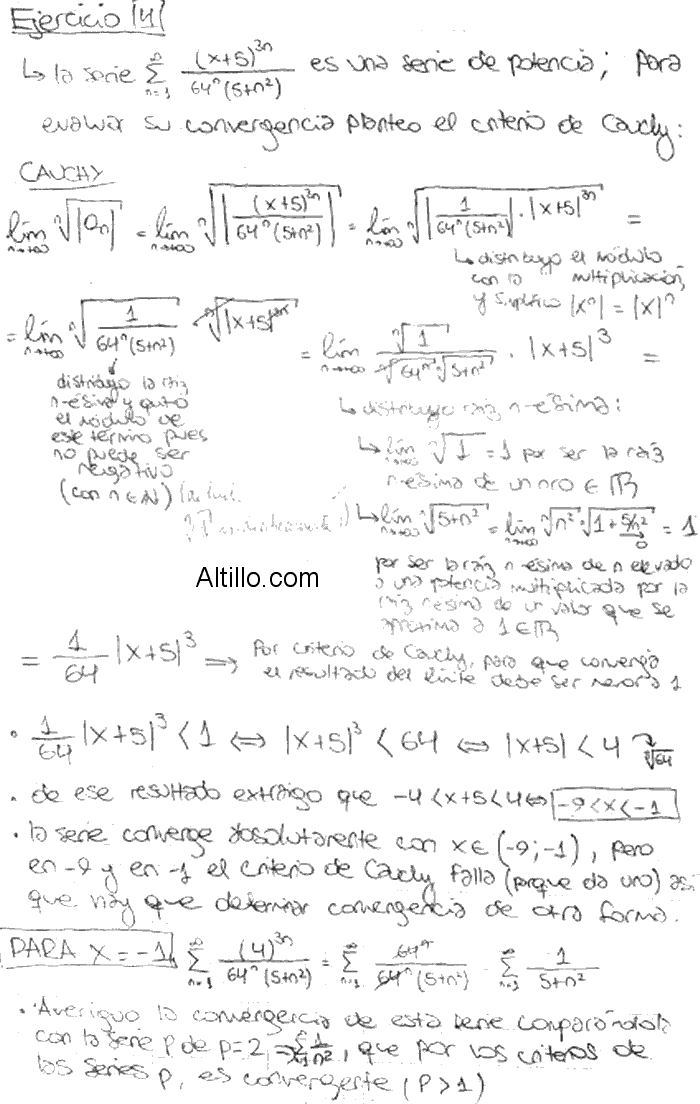 Ejercicio 4
↳ la serie ∑ n=1 ∞ (x+5)^3n / 64^n (5+n²) es una serie de potencia; Para
evaluar su convergencia planteo el criterio de Cauchy:
CAUCHY
lím n→+∞ ⁿ√|an| = lím n→+∞ ⁿ√|(x+5)^3n / 64^n (5+n²)| = lím n→+∞ ⁿ√|1 / 64^n (5+n²)| · |x+5|^3n =
↳ distribuyo el módulo
con la multiplicación,
y |x^n| = |x|^n
= lím n→+∞ ⁿ√1 / 64^n (5+n²) ⁿ√|x+5|^3n = lím n→+∞ ⁿ√1 / ⁿ√64^n ⁿ√5+n² · |x+5|³ =
distribuyo la raíz
n-ésima y quito
el módulo de
ese término pues
no puede ser
negativo
(con n ∈ N)
↳ distribuyo raíz n-ésima:
↳ lím n→+∞ ⁿ√1 = 1 por ser la raíz
n-ésima de un nro ∈ R
↳ lím n→+∞ ⁿ√5+n² = lím n→+∞ ⁿ√n² · ⁿ√1 + 5/n² = 1
→ 0
por ser la raíz n-ésima de n elevado
a una potencia multiplicada por la
raíz n-ésima de un valor que se
aproxima a 1 ∈ R
Altillo.com
= 1/64 |x+5|³ ⇒ Por criterio de Cauchy, para que converja
el resultado del límite debe ser menor a 1
• 1/64 |x+5|³ < 1 ⇔ |x+5|³ < 64 ⇔ |x+5| < 4 ³√64
• de ese resultado extraigo que -4 < x+5 < 4 ⇔ -9 < x < -1
• la serie converge absolutamente con x ∈ (-9; -1), pero
en -9 y en -1 el criterio de Cauchy falla (porque da uno) así
que hay que determinar convergencia de otra forma.
PARA X = -1 ∑ n=1 ∞ (4)^3n / 64^n (5+n²) = ∑ n=1 ∞ 64^n / 64^n (5+n²) ∑ n=1 ∞ 1 / 5+n²
• Averiguo la convergencia de esta serie comparándola
con la serie p de p=2, ⇒ ∑ 1/n², que por los criterios de
las series p, es convergente (P>1)